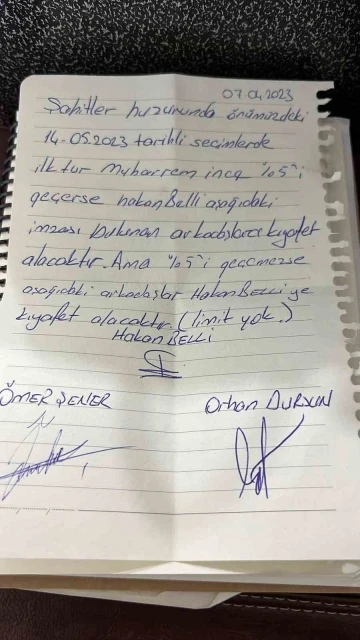 07.04.2023
Şahitler huzurunda önümüzdeki
14-05.2023 tarihli seçimlerde
ilk tur Muharrem ince %5'i
geçerse hakan Belli aşağıdaki
imzası bulunan arkadaşlara kıyafet
alacaktır. Ama %5'i geçmezse
aşağıdaki arkadaşlar Hakan BELLİ'ye
kıyafet alacaktır. (limit yok.)
Hakan BELLİ
ÖMER ŞENER
Orhan DURSUN